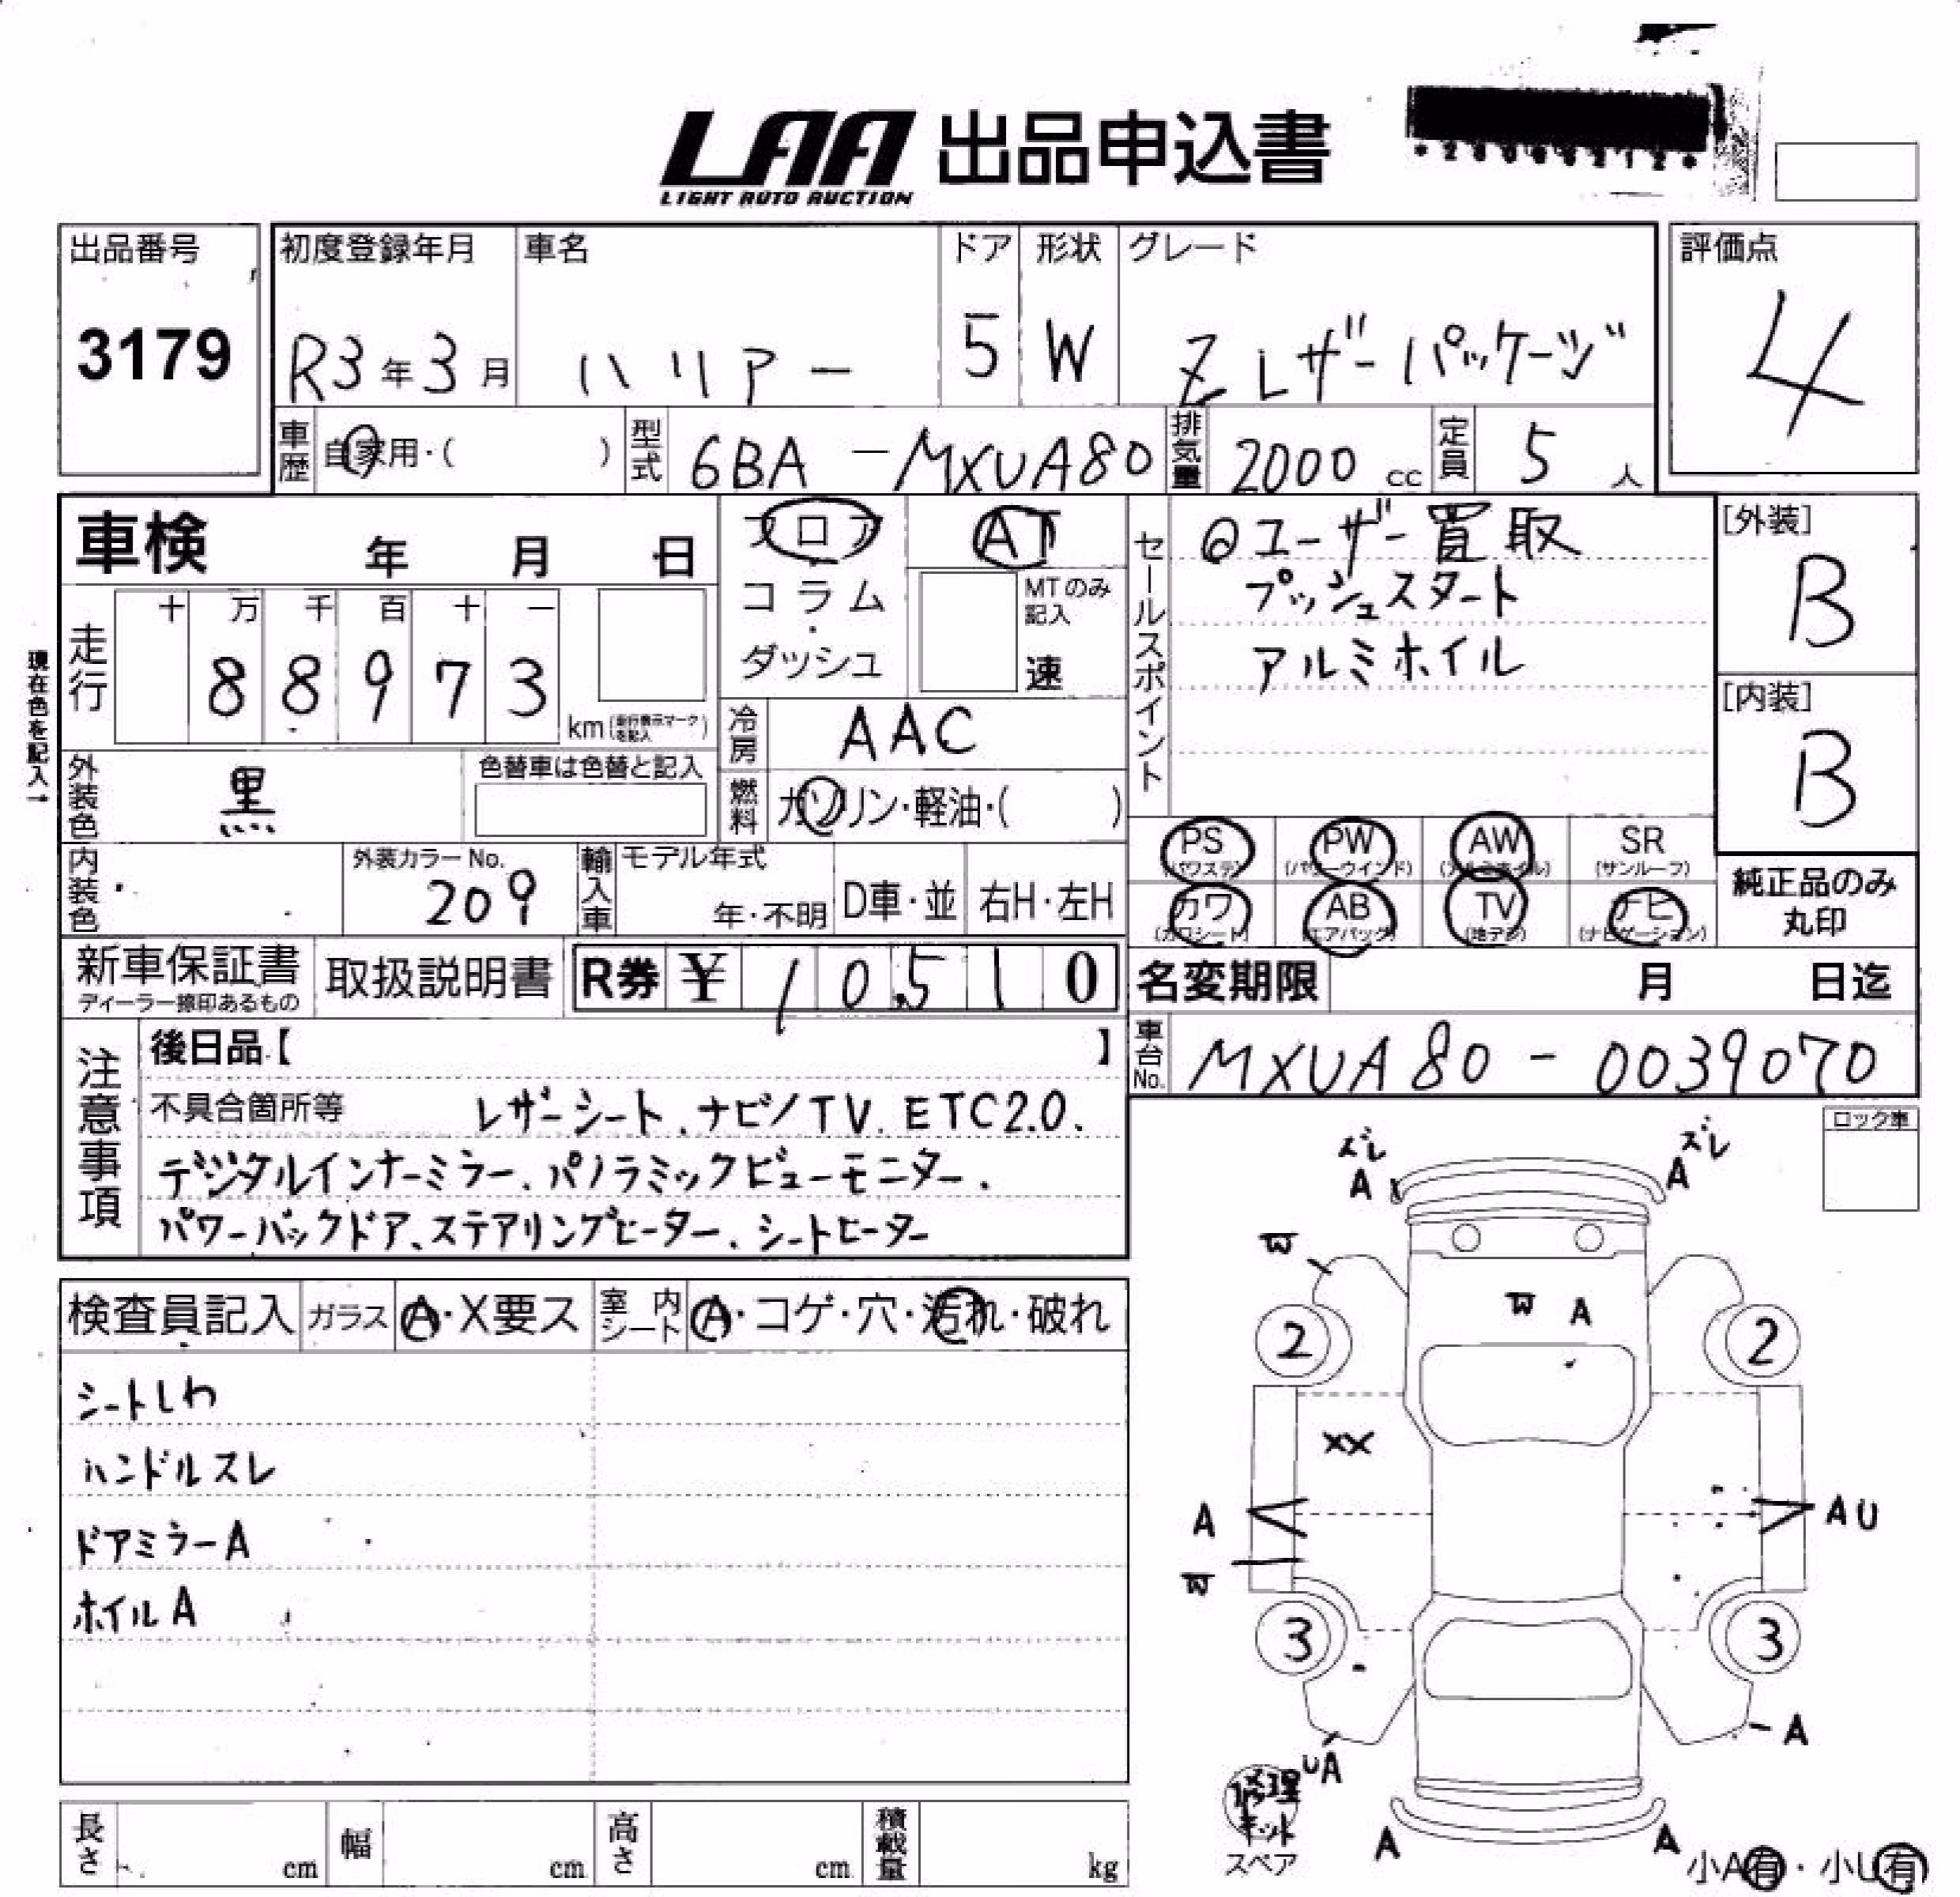 LAA 出品申込書
LIGHT AUTO AUCTION
出品番号
3179
初度登録年月
R3年3月
車名
ハリアー
ドア
5
形状
W
グレード
Z レザーパッケージ
評価点
4
車歴 自家用・( )
型式 6BA-MXUA80
排気量 2000 cc
定員 5 人
車検 年 月 日
走行
十 万 千 百 十 一
8 8 9 7 3
km (走行表示マークを記入)
現在色を記入→
外装色 黒
色替車は色替と記入
内装色
外装カラーNo.
209
フロア
・
コラム
・
ダッシュ
AT
MTのみ記入
速
冷房 AAC
燃料 ガソリン・軽油・( )
輸入車
モデル年式
年・不明
D車・並
右H・左H
セールスポイント
◎ユーザー買取
プッシュスタート
アルミホイル
[外装]
B
[内装]
B
PS (パワステ)
PW (パワーウインド)
AW (アルミホイル)
SR (サンルーフ)
カワ (カワシート)
AB (エアバッグ)
TV (地デジ)
ナビ (ナビゲーション)
純正品のみ
丸印
新車保証書
ディーラー捺印あるもの
取扱説明書
R券 ¥ 10,510
名変期限 月 日迄
車台No. MXUA80-0039070
注意事項
後日品【 】
不具合箇所等 レザーシート、ナビ/TV、ETC2.0、
デジタルインナーミラー、パノラミックビューモニター、
パワーバックドア、ステアリングヒーター、シートヒーター
ロック車
検査員記入
ガラス A・X要ス
室内シート A・コゲ・穴・汚れ・破れ
シートしわ
ハンドルスレ
ドアミラーA
ホイルA
ズレ
A
ズレ
A
W
W A
2
2
XX
A
AU
W
3
3
A
UA
修理キット
スペア
A
A
小A有・小U有
長さ cm
幅 cm
高さ cm
積載量 kg